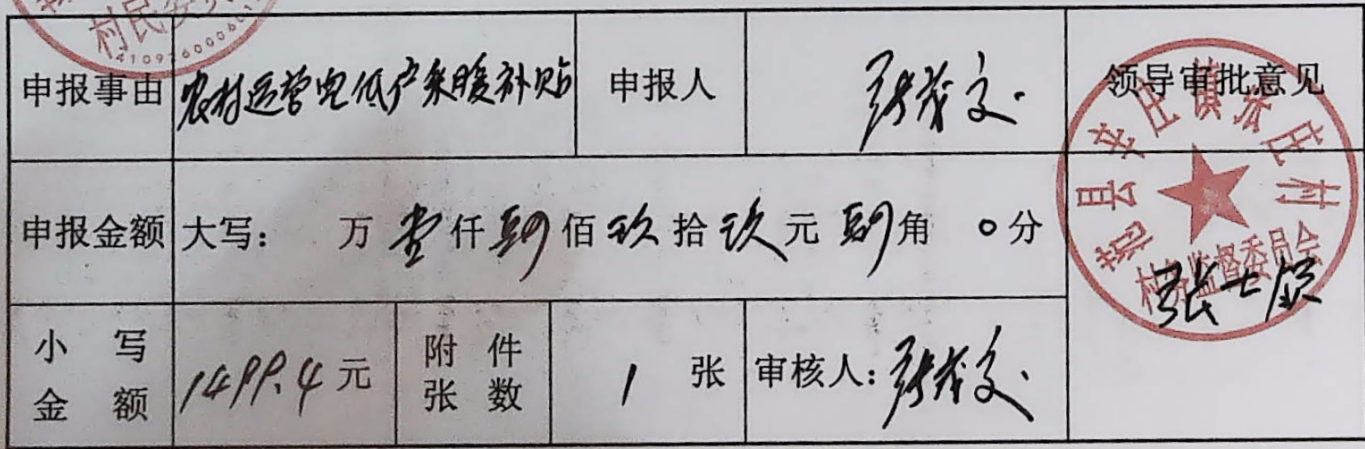 村民委员
4109260006015
申报事由 农村运营电低产采暖补贴 申报人 张茂文. 领导审批意见
申报金额 大写： 万 壹 仟 肆 佰 玖 拾 玖 元 肆 角 0 分
范县辛庄镇张庄村
村务监督委员会
小写金额 1499.4 元 附件张数 1 张 审核人：张茂文.